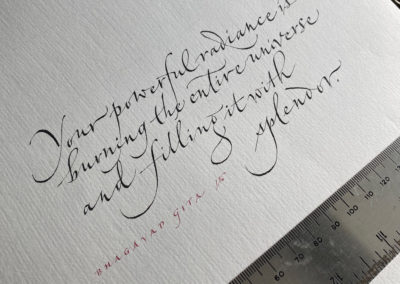 Your powerful radiance is
burning the entire universe
and filling it with
splendor.
BHAGAVAD GITA
60 70 80 90 100 110 120 130